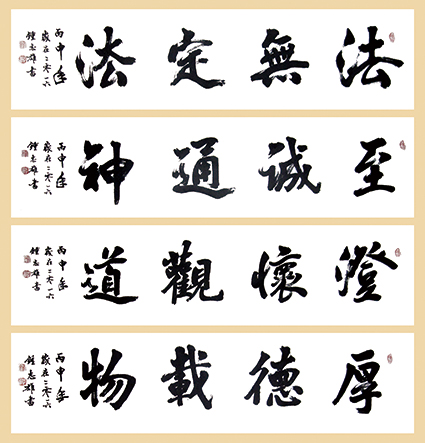 法無定法
丙申年
歲在二零一六
鍾志雄書
至誠通神
丙申年
歲在二零一六
鍾志雄書
澄懷觀道
丙申年
歲在二零一六
鍾志雄書
厚德載物
丙申年
歲在二零一六
鍾志雄書